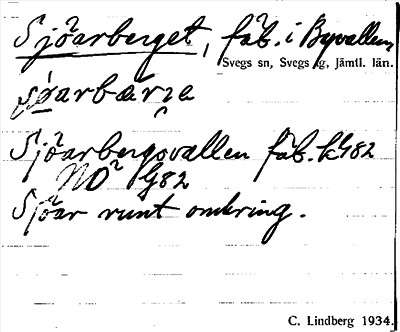 Sjöarberget, fäb. i Byvallen,
Svegs sn, Svegs tg, Jämtl. län.
Sjöarbergsvallen fäb. k G82
NO² G82
Sjöar runt omkring.
C. Lindberg 1934.